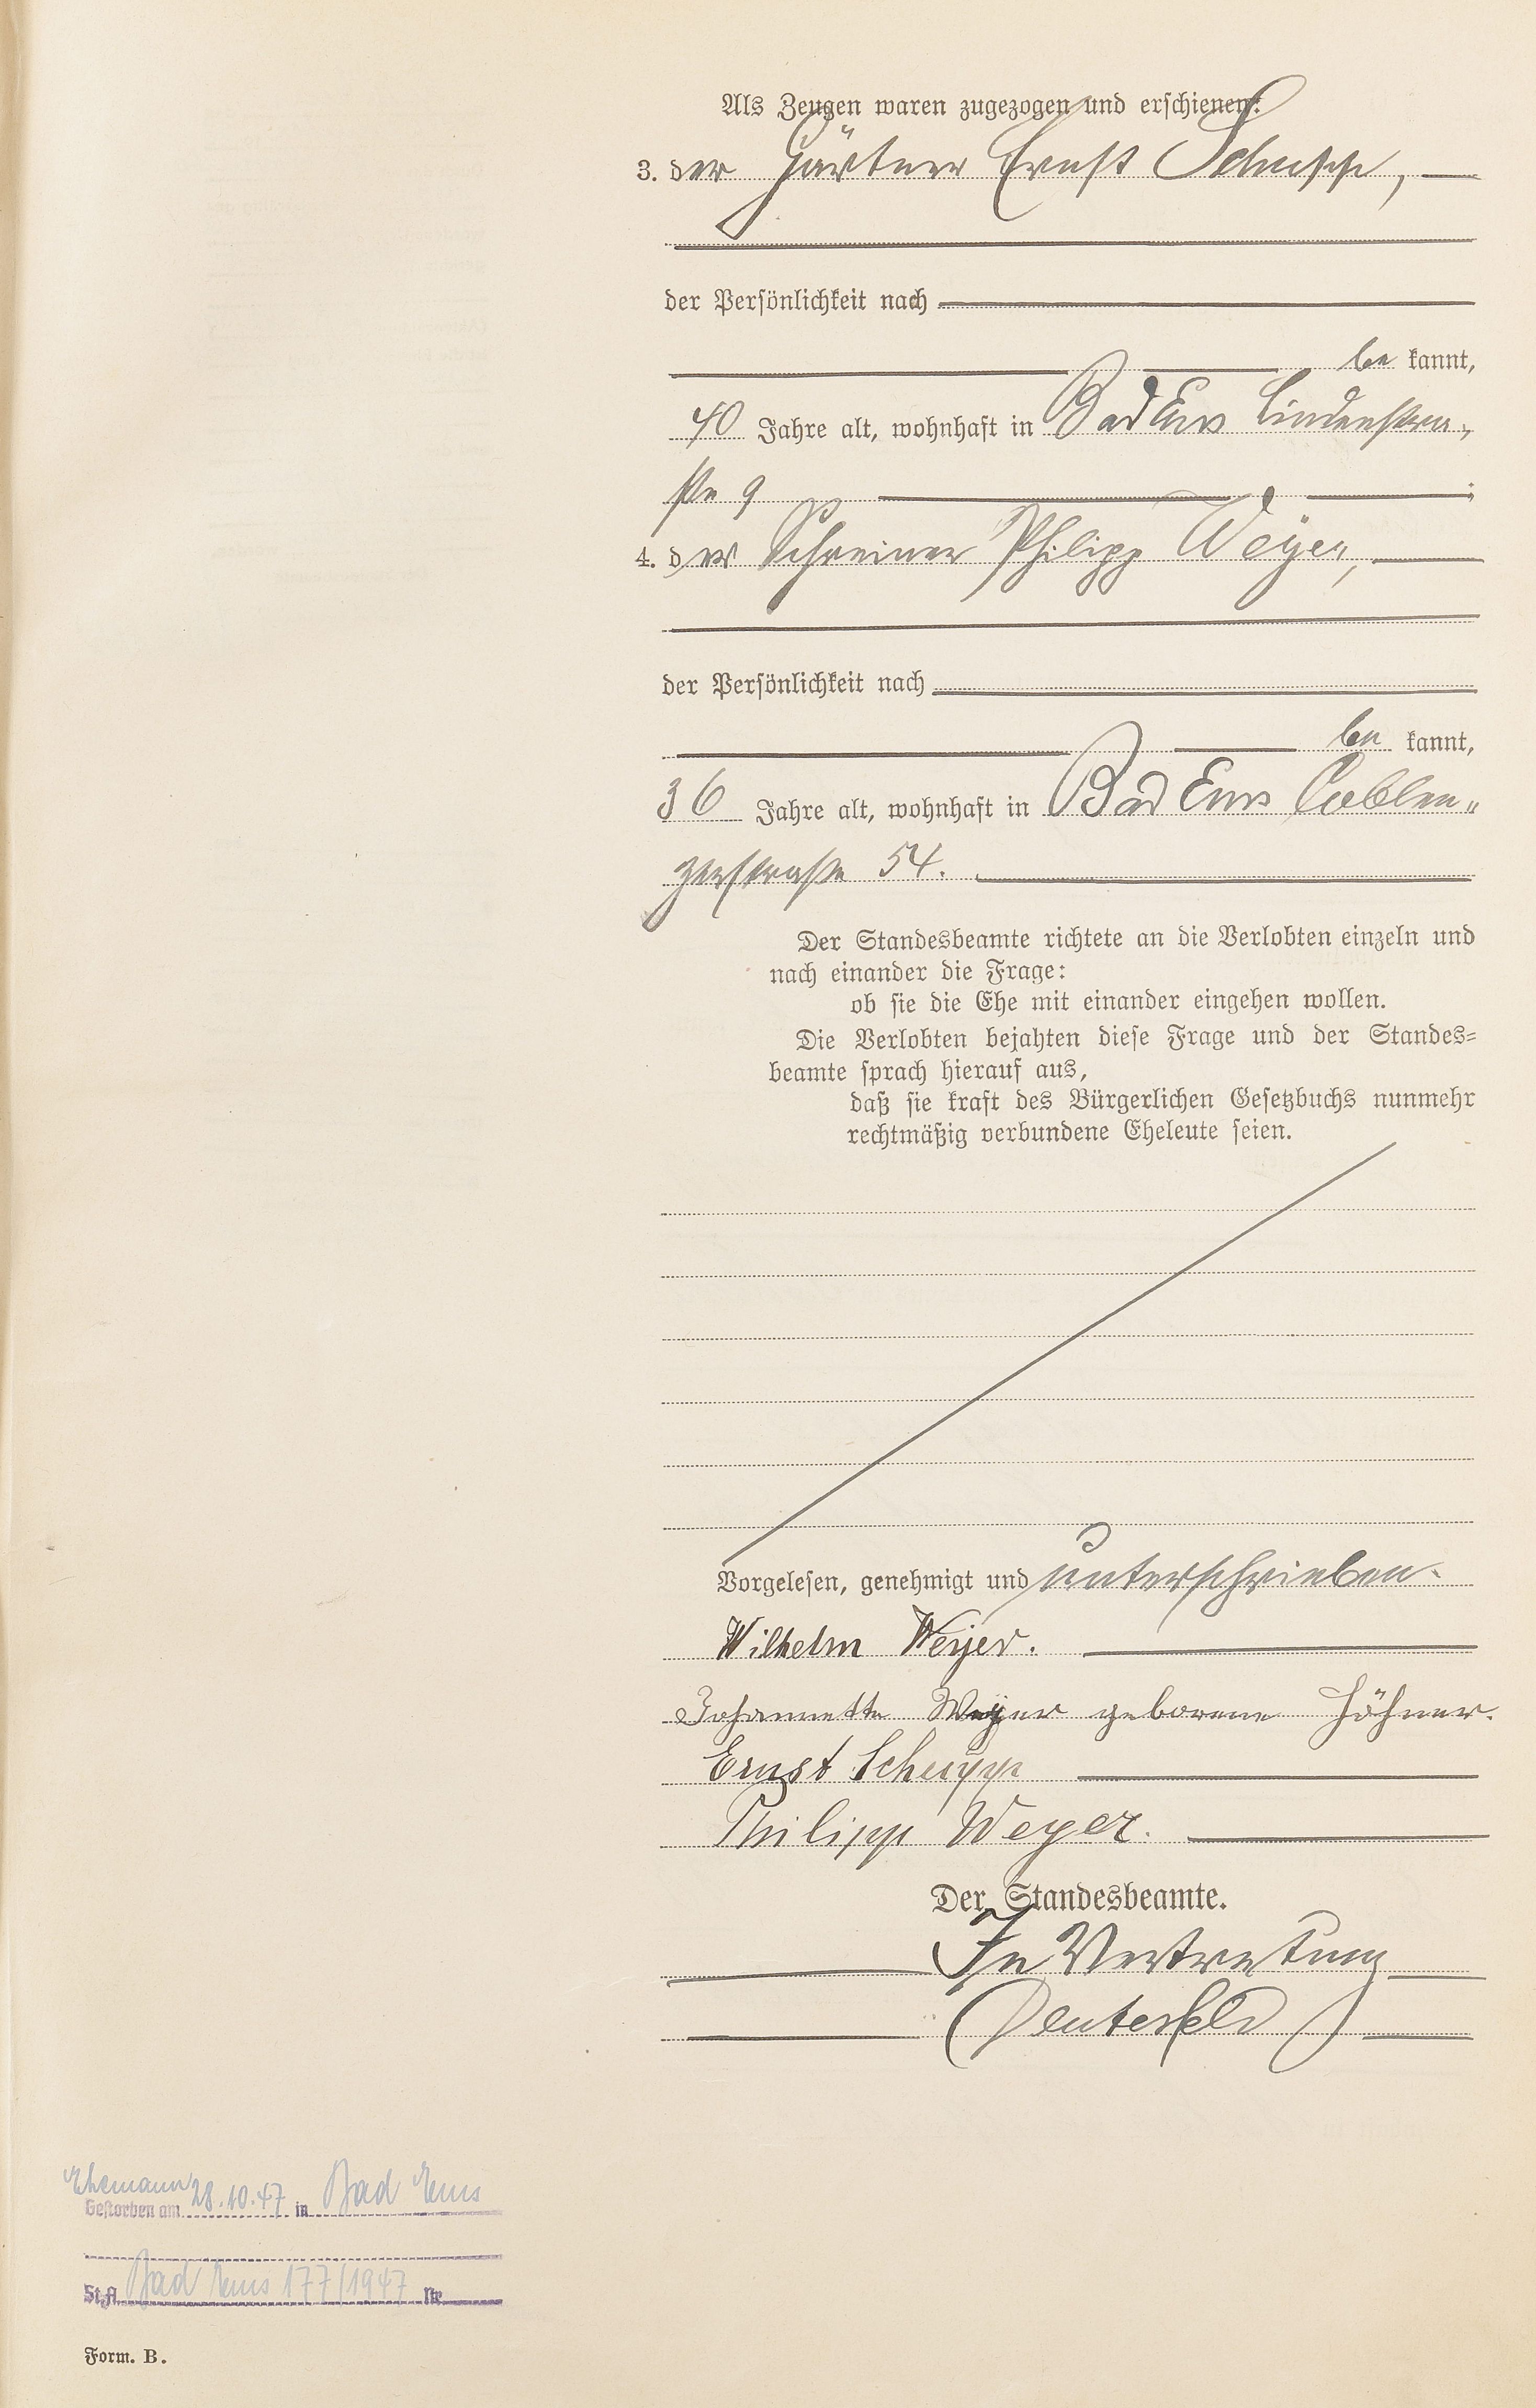 Als Zeugen waren zugezogen und erschienen:
3. der Gärtner Ernst Schupp,
der Persönlichkeit nach
be kannt,
40 Jahre alt, wohnhaft in Bad Ems Lindenstra-
ße 9
4. der Schreiner Philipp Weyer,
der Persönlichkeit nach
be kannt,
36 Jahre alt, wohnhaft in Bad Ems Coblen„
zerstraße 54.
Der Standesbeamte richtete an die Verlobten einzeln und
nach einander die Frage:
ob sie die Ehe mit einander eingehen wollen.
Die Verlobten bejahten diese Frage und der Standes=
beamte sprach hierauf aus,
daß sie kraft des Bürgerlichen Gesetzbuchs nunmehr
rechtmäßig verbundene Eheleute seien.
Vorgelesen, genehmigt und unterschrieben.
Wilhelm Weyer.
Johannette Weyer geborene Höhner.
Ernst Schupp
Philipp Weyer.
Der Standesbeamte.
In Vertretung
Deutesfeld
Ehemann
Gestorben am 28.10.47 in Bad Ems
St.A. Bad Ems 177/1947 Nr.
Form. B.